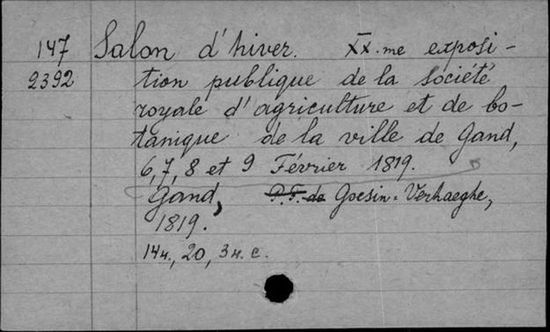 147 Salon d'hiver. XX.me exposi-
2392 tion publique de la société
royale d'agriculture et de bo-
tanique de la ville de Gand,
6, 7, 8 et 9 Février 1819.
Gand, P.F. de Goesin-Verhaeghe,
1819.
14н., 20, 3н. с.